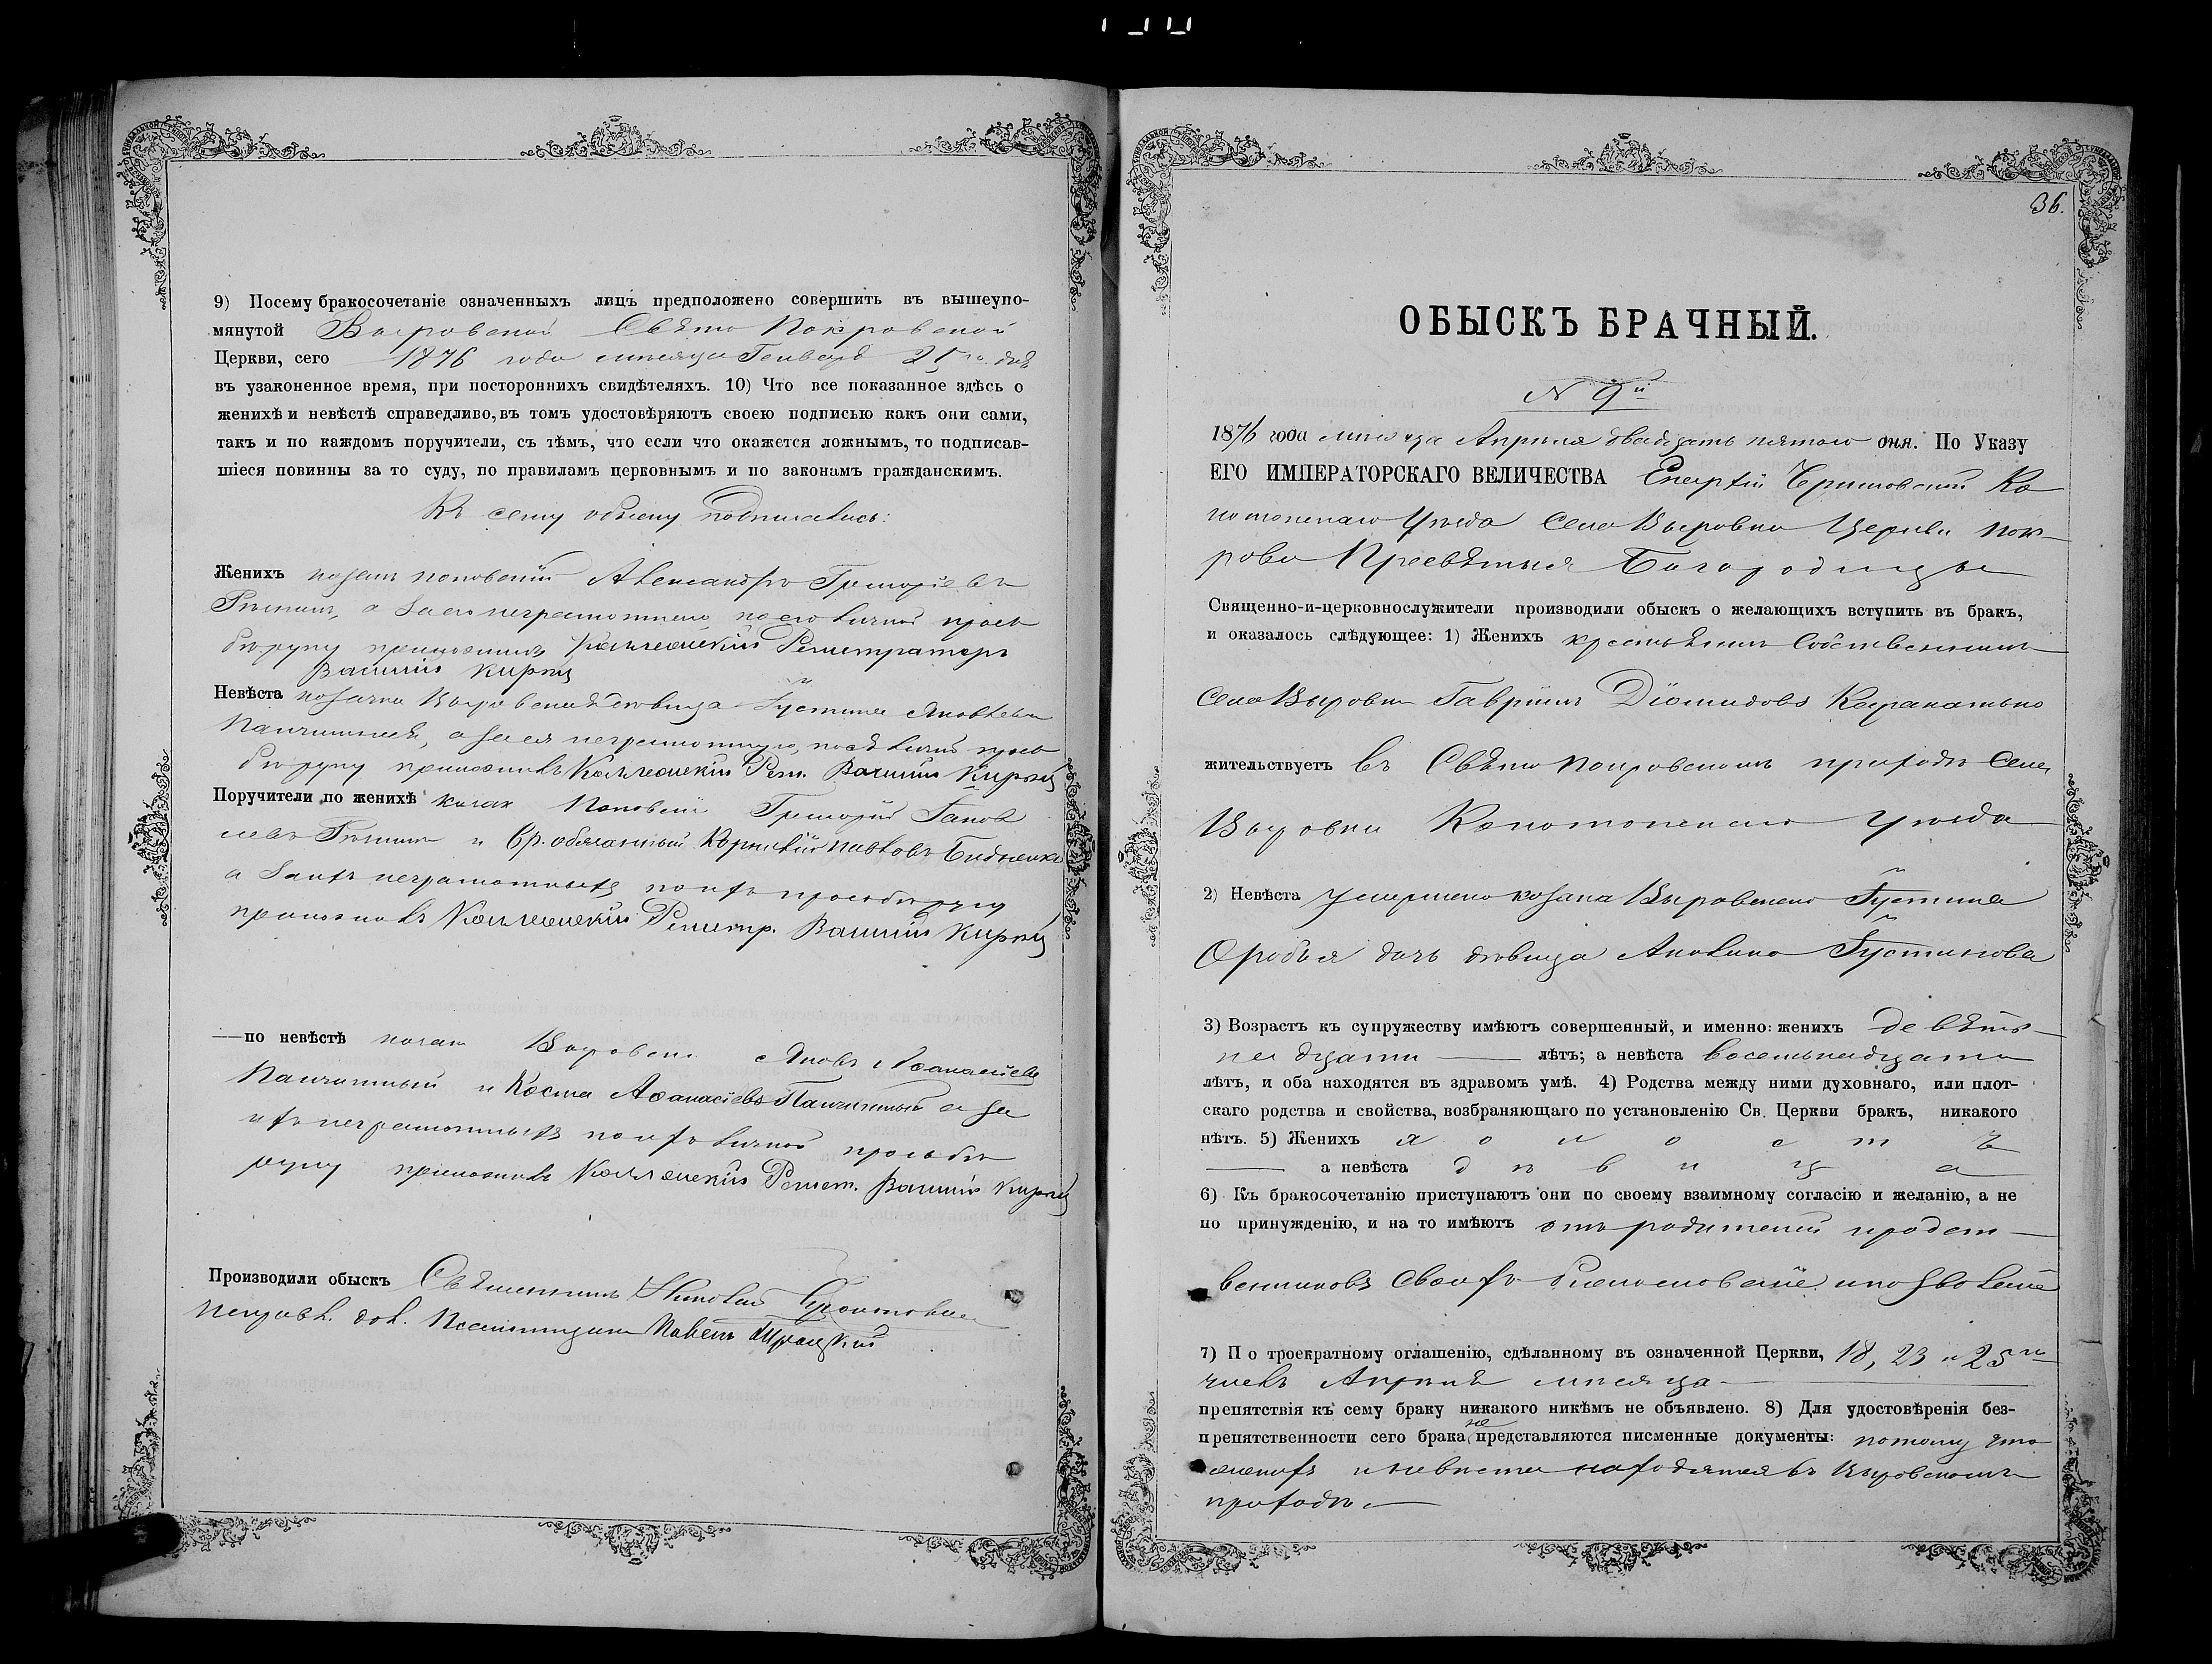 9) Посему бракосочетаніе означенныхъ лицъ предположено совершить въ вышеупо-
мянутой Выровской Свято Покровской
Церкви, сего 1876 года месяца Генваря 25го дня
въ узаконенное время, при постороннихъ свидѣтеляхъ. 10) Что все показанное здѣсь о
женихѣ и невѣстѣ справедливо, въ томъ удостовѣряютъ своею подписью какъ они сами,
такъ и по каждомъ поручители, съ тѣмъ, что если что окажется ложнымъ, то подписав-
шіеся повинны за то суду, по правиламъ церковнымъ и по законамъ гражданскимъ.
Къ сему обыску подписались:
Женихъ козакъ поповскій Александръ Григоріевъ
а за его неграмотного по его личной прось
бѣ руку приложилъ Коллежскій Регистраторъ
Василій Кирѣй
Невѣста козачка Выровская дѣвица Іустина Яковлева
а за ея неграмотную, по ея личной прось
бѣ руку приложилъ Коллежскій Рег. Василій Кирѣй
Поручители по женихѣ козак Поповскій Григорій
и вр. обязанный Павловъ Бидненко
а за ихъ неграмотныхъ по ихъ просьбѣ руку
приложилъ Коллежскій Регистр. Василій Кирѣй
—по невѣстѣ козак Выровск. Яковъ Аѳанасіевъ
и Косма Аѳанасіевъ а за
ихъ неграмотныхъ по ихъ личной просьбѣ
руку приложилъ Коллежскій Регист. Василій Кирѣй
Производили обыскъ Священникъ Николай
дол. Псаломщика Павелъ
36.
ОБЫСКЪ БРАЧНЫЙ.
N 9й
1876 года месяца Апреля двадцать пятого дня. По Указу
ЕГО ИМПЕРАТОРСКАГО ВЕЛИЧЕСТВА Епархіи Черниговской Ко
нотопскаго Уезда Села Выровки Церкви Пок-
рова Пресвятыя Богородицы
Священно-и-церковнослужители производили обыскъ о желающихъ вступить въ бракъ,
и оказалось слѣдующее: 1) Женихъ крестьянинъ Собственникъ
Села Выровки Гавріилъ Діомидовъ
жительствуетъ въ Свято Покровскомъ приходѣ Села
Выровки Конотопскаго Уезда
2) Невѣста умершего козака Выровского Іустина
дочь дѣвица Акилина Іустинова
3) Возрастъ къ супружеству имѣютъ совершенный, и именно: женихъ девять
надцати лѣтъ; а невѣста восемьнадцати
лѣтъ, и оба находятся въ здравомъ умѣ. 4) Родства между ними духовнаго, или плот-
скаго родства и свойства, возбраняющаго по установленію Св. Церкви бракъ, никакого
нѣтъ. 5) Женихъ холостъ
а невѣста дѣвица
6) Къ бракосочетанію приступаютъ они по своему взаимному согласію и желанію, а не
по принужденію, и на то имѣютъ отъ родителей и родст-
венниковъ своихъ благословеніе и позволеніе
7) По троекратному оглашенію, сдѣланному въ означенной Церкви, 18, 23 и 25го
числъ Апрѣля месяца
препятствія къ сему браку никакого никѣмъ не объявлено. 8) Для удостовѣренія без-
препятственности сего брака не представляются писменные документы: потому что
женихъ и невѣста находятся въ Выровскомъ
приходѣ.